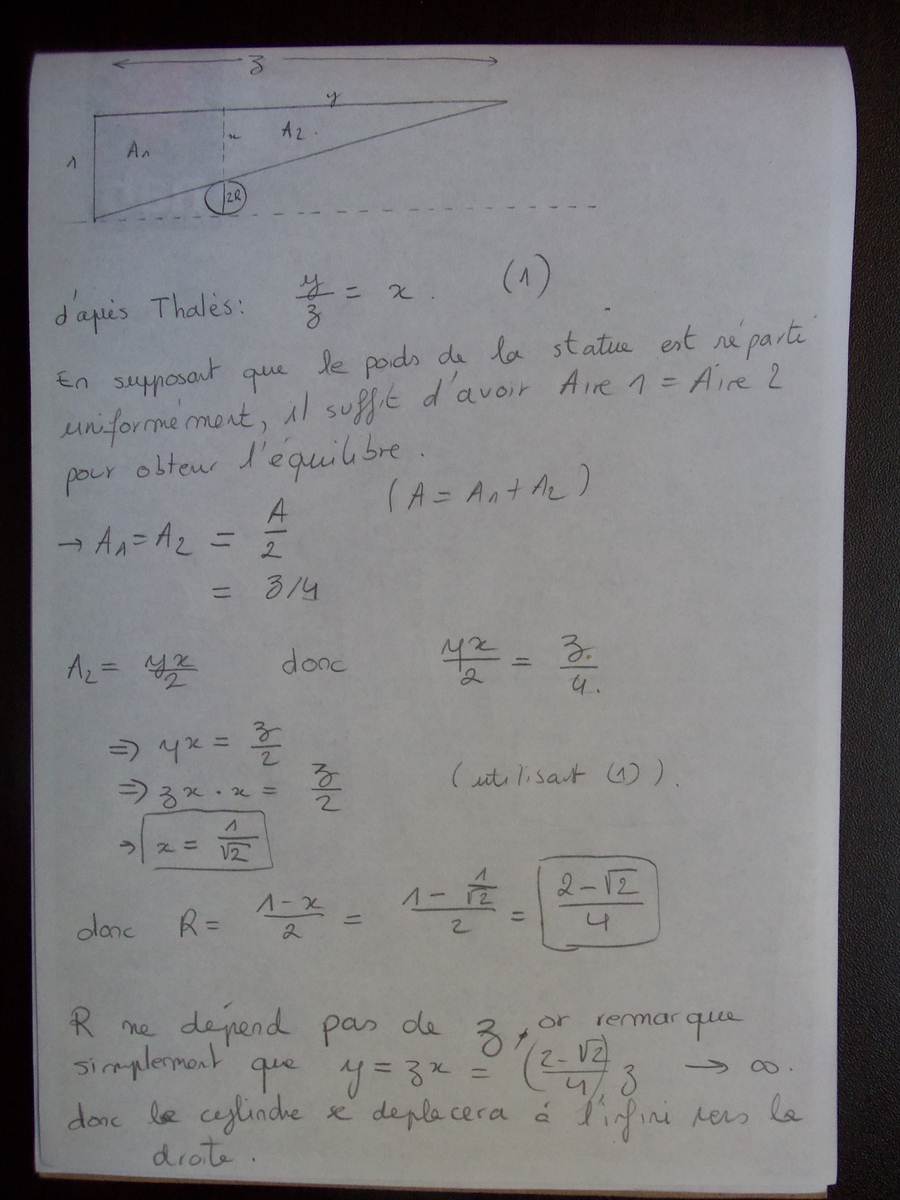 z
y
1 A1 x A2.
2R
d'après Thalès: y/z = x. (1)
En supposant que le poids de la statue est réparti
uniformément, il suffit d'avoir Aire 1 = Aire 2
pour obtenir l'équilibre.
(A = A1 + A2)
→ A1 = A2 = A/2
= z/4
A2 = yx/2 donc yx/2 = z/4.
⇒ yx = z/2
⇒ zx · x = z/2 (utilisant (1)).
→ x = 1/√2
donc R = (1-x)/2 = (1 - 1/√2)/2 = (2-√2)/4
R ne dépend pas de z, or remarque
simplement que y = zx = ((2-√2)/4) z → ∞.
donc le cylindre se deplacera à l'infini vers la
droite.